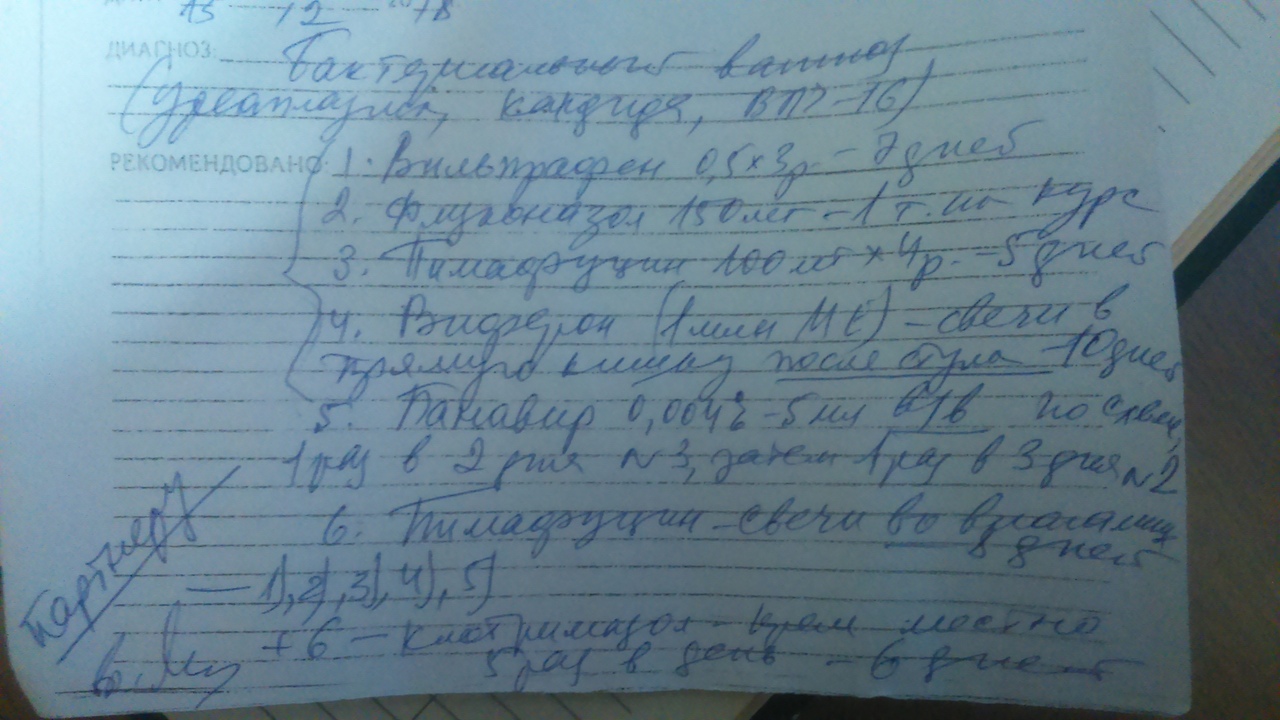 15 12 2018
ДИАГНОЗ: Бактериальный вагиноз
(Уреаплазмоз, кандида, ВПЧ-16)
РЕКОМЕНДОВАНО: 1. Вильпрафен 0,5 х 3р – 7 дней
2. Флуконазол 150 мг – 1 т. на курс
3. Пимафуцин 100 мг х 4р. – 5 дней
4. Виферон (1 млн МЕ) – свечи в
прямую кишку после стула – 10 дней
5. Панавир 0,004% – 5 мл в/в по схеме,
1 раз в 2 дня N3, затем 1 раз в 3 дня N2
6. Пимафуцин – свечи во влагалище
дней
Партнеру
— 1), 2), 3), 4), 5)
+ 6 – Клотримазол – крем местно
раз в день – 6 дней